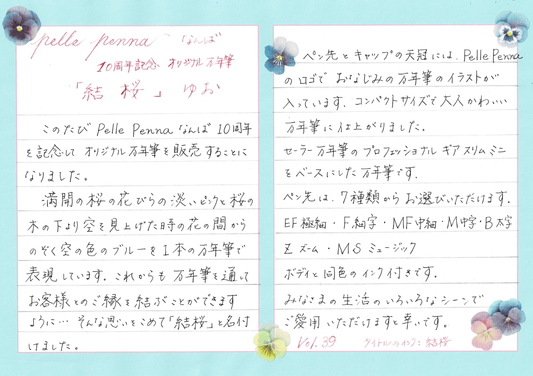 pelle penna なんば
10周年記念 オリジナル万年筆
「結桜」ゆお
このたび Pelle Penna なんば 10周年
を記念して オリジナル万年筆を販売することに
なりました。
満開の桜の花びらの淡いピンクと桜の
木の下より空を見上げた時の花の間から
のぞく空の色のブルーを1本の万年筆で
表現しています。これからも 万年筆を通して
お客様とのご縁を結ぶことができます
ように… そんな思いをこめて「結桜」と名付
けました。
ペン先とキャップの天冠には、Pelle Penna
のロゴで おなじみの万年筆のイラストが
入っています。コンパクトサイズで大人かわいい
万年筆に仕上がりました。
セーラー万年筆のプロフェッショナル ギア スリム ミニ
をベースにした万年筆です。
ペン先は、7種類からお選びいただけます。
EF 極細・F 細字・MF 中細・M 中字・B 太字
Z ズーム・MS ミュージック
ボディと同色のインク付きです。
みなさまの生活のいろいろなシーンで
ご愛用いただけますと幸いです。
Vol.39 タイトルのインク: 結桜